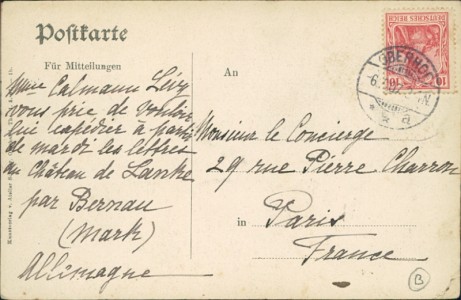 Postkarte
Für Mitteilungen
An
DEUTSCHES REICH
10
10
OBERHOF
Mme Calmann Lévy
vous prie de vouloir
lui expédier à partir
de mardi les lettres
au Château de Lanke
par Bernau
(Mark)
Allemagne
Monsieur le Concierge
29 rue Pierre Charron
in Paris
France
B